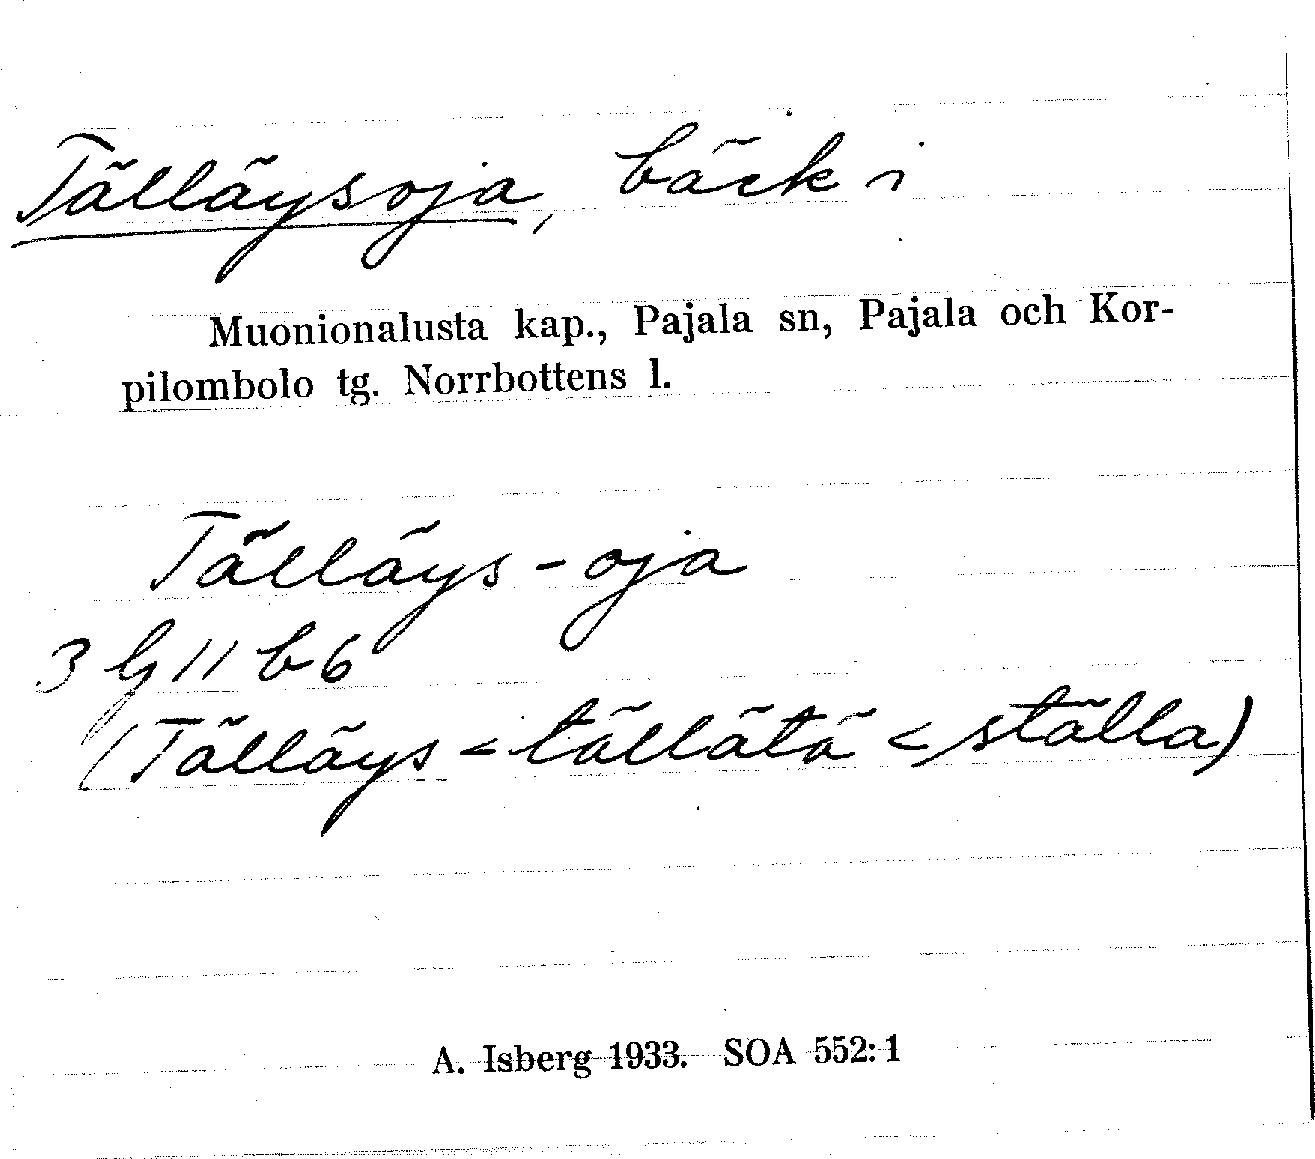 Tälläysoja, bäck i
Muonionalusta kap., Pajala sn, Pajala och Kor-
pilombolo tg. Norrbottens l.
Tälläys-oja
3 lj 11 b 6
(Tälläys < tällätä < ställa)
A. Isberg 1933. SOA 552:1